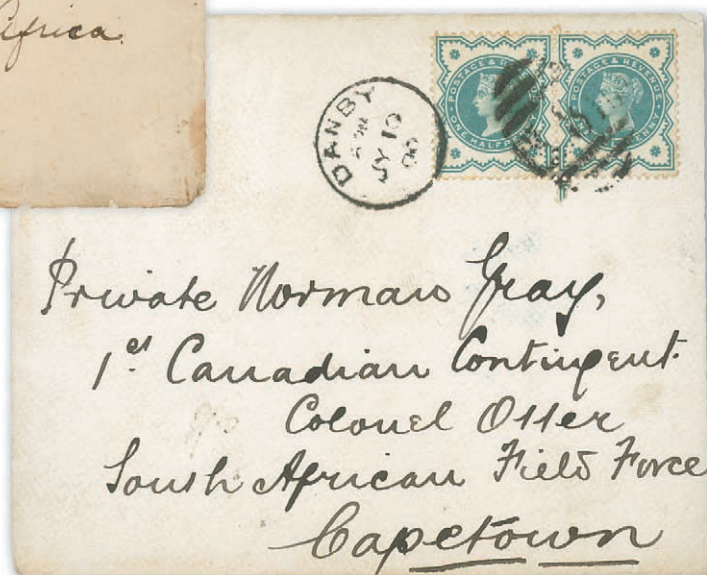 Africa.
DANBY
POSTAGE & REVENUE
ONE HALFPENNY
POSTAGE & REVENUE
Private Norman Gray,
1st Canadian Contingent.
Colonel Otter
South African Field Force
Capetown